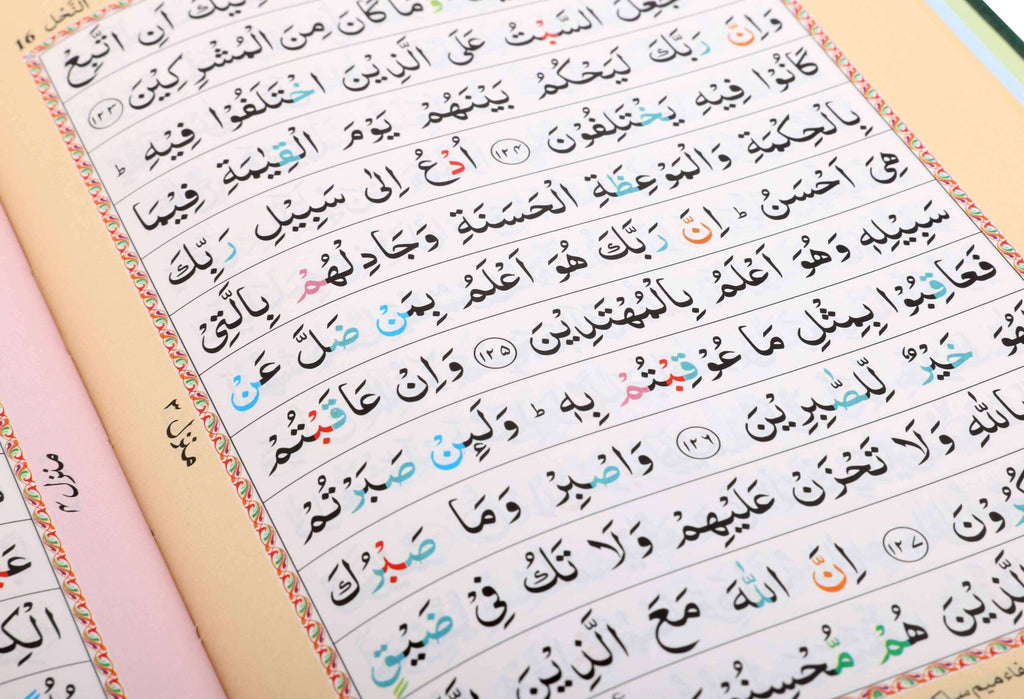 النَّحل ١٦
اَنِ اتَّبِعْ
وَمَا كَانَ مِنَ الْمُشْرِكِيْنَ ١٢٣
جُعِلَ السَّبْتُ عَلَى الَّذِيْنَ اخْتَلَفُوْا فِيْهِ ؕ
وَاِنَّ رَبَّكَ لَيَحْكُمُ بَيْنَهُمْ يَوْمَ الْقِيٰمَةِ فِيْمَا
كَانُوْا فِيْهِ يَخْتَلِفُوْنَ ١٢٤ اُدْعُ اِلٰى سَبِيْلِ رَبِّكَ
بِالْحِكْمَةِ وَالْمَوْعِظَةِ الْحَسَنَةِ وَجَادِلْهُمْ بِالَّتِيْ
هِيَ اَحْسَنُ ؕ اِنَّ رَبَّكَ هُوَ اَعْلَمُ بِمَنْ ضَلَّ عَنْ
سَبِيْلِهٖ وَهُوَ اَعْلَمُ بِالْمُهْتَدِيْنَ ١٢٥ وَاِنْ عَاقَبْتُمْ
فَعَاقِبُوْا بِمِثْلِ مَا عُوْقِبْتُمْ بِهٖ ؕ وَلَىِٕنْ صَبَرْتُمْ
لَهُوَ خَيْرٌ لِّلصّٰبِرِيْنَ ١٢٦ وَاصْبِرْ وَمَا صَبْرُكَ
بِاللّٰهِ وَلَا تَحْزَنْ عَلَيْهِمْ وَلَا تَكُ فِيْ ضَيْقٍ
١٢٧ اِنَّ اللّٰهَ مَعَ الَّذِيْنَ
الَّذِيْنَ هُمْ مُّحْسِنُوْنَ
منزل ٣
منزل ٣